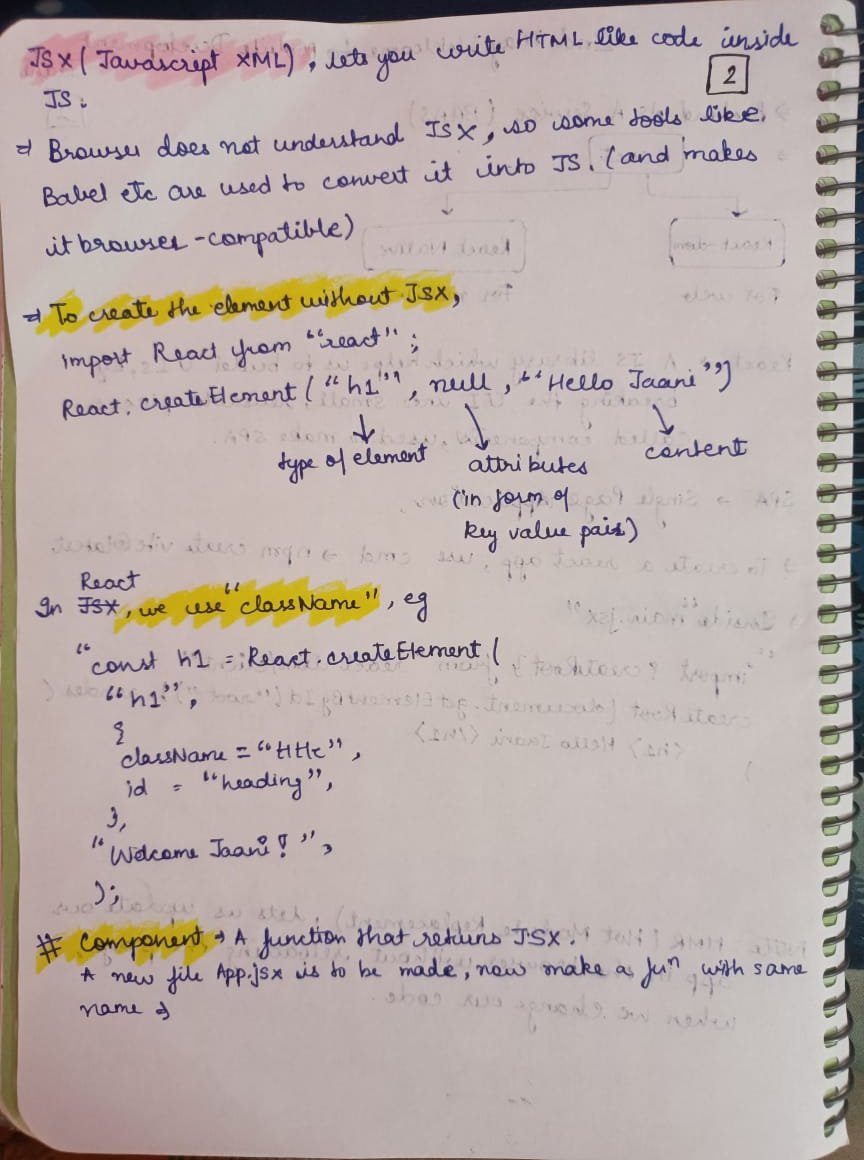 JSX (Javascript XML), lets you write HTML like code inside
JS.
2
⇒ Browser does not understand JSX, so some tools like
Babel etc are used to convert it into JS. (and makes
it browser-compatible)
⇒ To create the element without JSX,
import React from "react";
React.createElement("h1", null, "Hello Jaani")
type of element
attributes
content
(in form of
key value pair)
React
In JSX, we use "className", eg
"const h1 = React.createElement(
"h1",
{
className = "title",
id = "heading",
},
"Welcome Jaani!",
);
# Component → A function that returns JSX.
A new file App.jsx is to be made, now make a fun with same
name ⇒